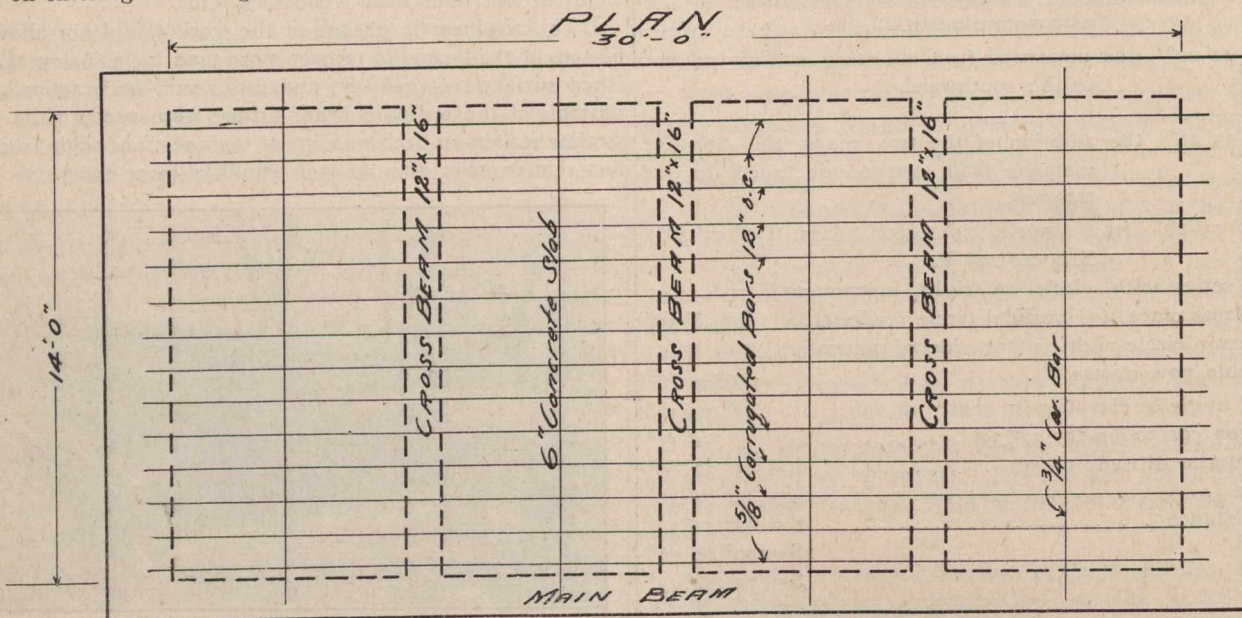 PLAN
30'-0"
14'-0"
CROSS BEAM 12"x16"
6" Concrete Slab
CROSS BEAM 12"x16"
5/8" Corrugated Bars 12" o.c.
CROSS BEAM 12"x16"
3/4" Cor. Bar
MAIN BEAM